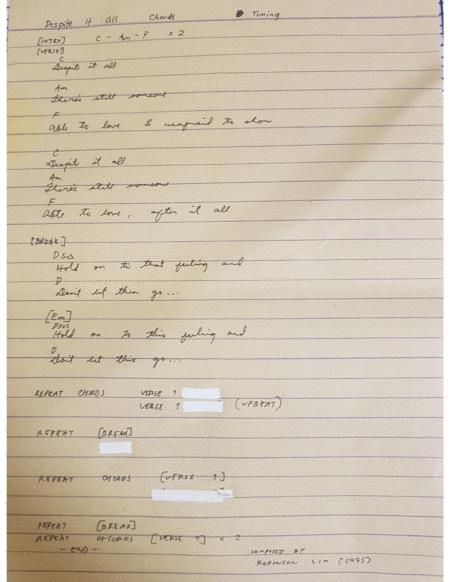 Despite it All Chords Tuning
[INTRO] C - Am - F x 2
[VERSE]
C
Despite it all
Am
There's still someone
F
able to love & unafraid to show
C
Despite it all
Am
There's still someone
F
able to love, after it all
[BREAK]
Dsus
Hold on to that feeling and
D
Don't let them go...
[Em]
Dsus
Hold on to this feeling and
D
Don't let this go...
REPEAT CHORDS VERSE 1
VERSE 1 (UPBEAT)
REPEAT [BREAK]
REPEAT CHORDS [VERSE 1]
REPEAT [BREAK]
REPEAT CHORDS [VERSE 1] x 2
- END - COMPOSED BY
ROBINSON LIM (1995)